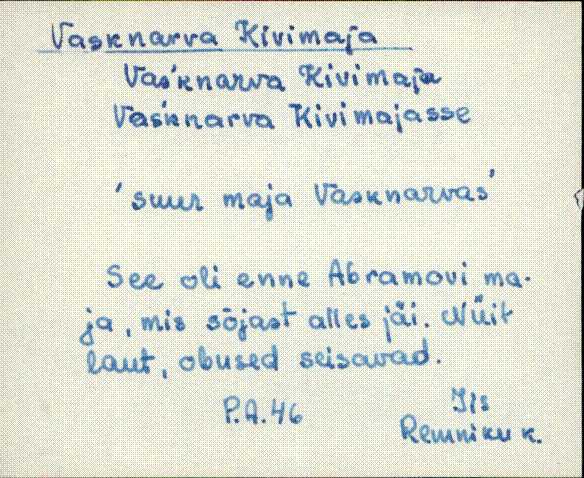 Vasknarva Kivimaja
Vas'knarva Kivimaja
Vas'knarva Kivimajasse
'suur maja Vasknarvas'
See oli enne Abramovi ma-
ja, mis sõjast alles jäi. Nüit
laut, obused seisavad.
P.A.46
Iis
Remniku k.